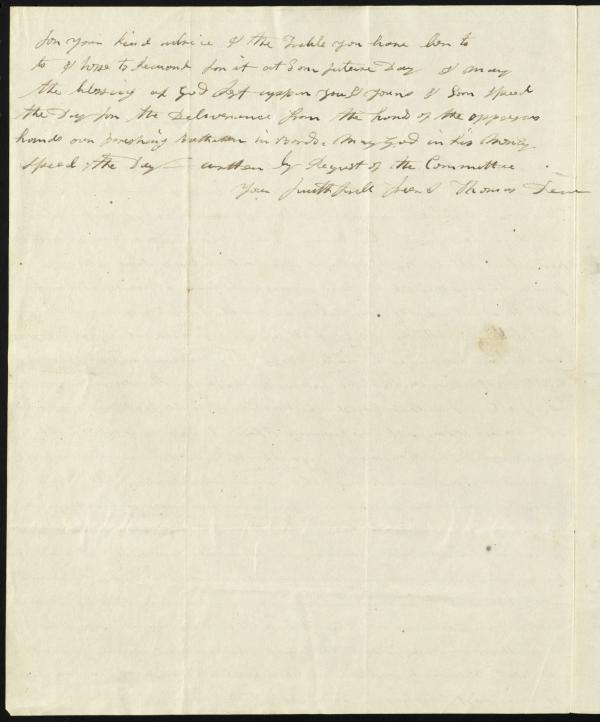 for your kind advice & the Troble you have ben to
to & hope to for it at Som futerue Day & may
the blessing of God Rest uppon you & yours & Soon Speed
the Day for the Deliverance from the hands of the oppresers
hands our perishing in Bonds. May God in his Mercy
Speed the Day — written by Request of the Committee
Your friend Thomas